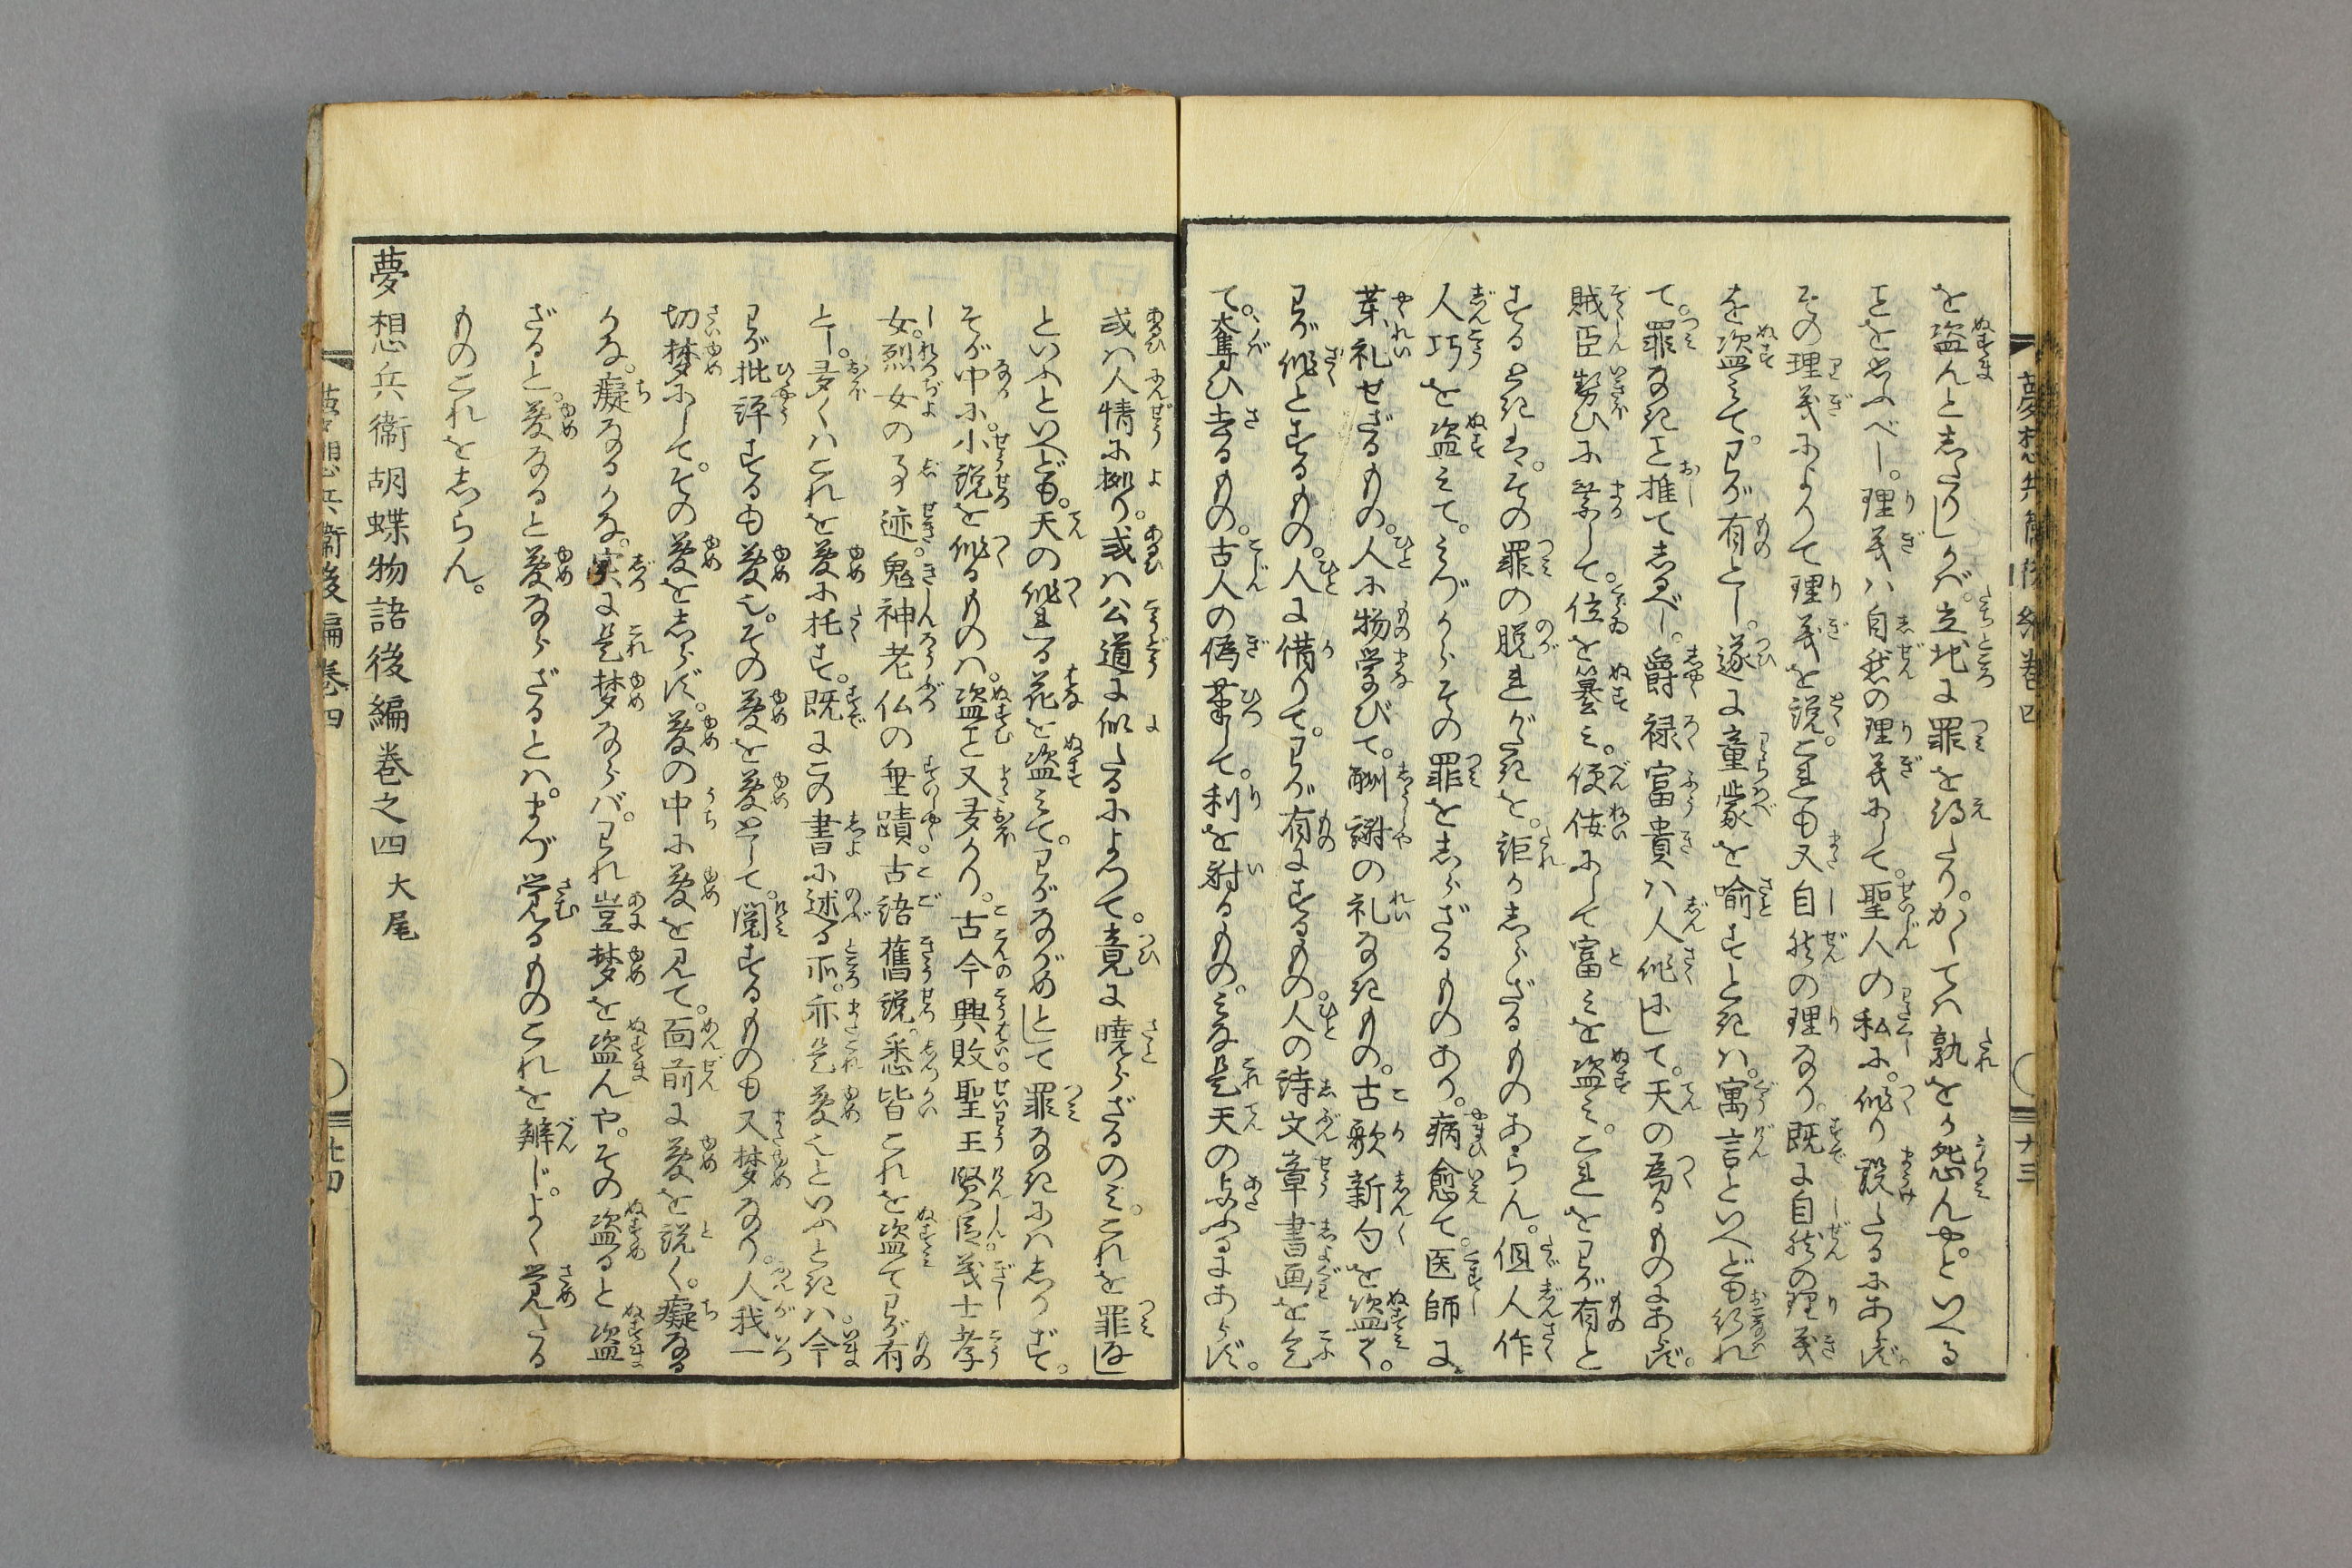 を盗んと志たりしかバ。立地に罪を得たり。かくてハ孰をか怨んや。といへる
ことを思ふべし。理義ハ自然の理義にして。聖人の私に。作り設たるにあらず。
その理義によりて理義を説。これも又自然の理なり。既に自然の理義
を盗みて。わが有とし。遂に童蒙を喩すときハ。寓言といへども行れ
て。罪なきこと推てしるべし。爵禄冨貴ハ人作にして。天の為るものにあらず。
賊臣勢ひに乗して。位を簒み。便佞にして冨みを盗み。これをわが有と
するときは。その罪の脱れがたきを。誰か志らざるものあらん。但人作
人巧を盗みて。みづからその罪を志らざるものあり。病愈て。医師に
薬礼せざるもの。人に物学びて。酬謝の礼なきもの。古歌新句を盗て。
わが作とするもの。人に借りて。わが有にするもの。人の詩文章書画を乞
て。奪ひ去るもの。古人の偽筆して。利を射るもの。みな是天の与ふるにあらず。
或ハ人情に拠り。或ハ公道に似たるによつて。竟に曉らざるのみ。これを罪なし
といふといへども。天の作れる花を盗みて。わがながめとして罪なきにハしかず。
そが中に。小説を作るものハ。盗こと又多かり。古今興敗聖王賢臣義士孝
女。烈女の事迹。鬼神老仏の垂蹟古語舊説。悉皆これを盗てわが有
とし。多くハこれを夢に托す。既にこの書に述る所。亦是夢也といふときハ。今
わが批評するも夢也。その夢を夢として。閲するものも又梦なり。人我一
切梦にして。その夢を志らず。夢の中に夢を見て。面前に夢を説く。癡なる
かな。癡なるかな。実に是梦ならバ。われ豈梦を盗んや。その盗ると盗
ざると。夢なると夢ならざるとハ。まづ覚るものこれを辨じ。よく覚たる
ものこれを志らん。
夢想兵衛胡蝶物語後編巻之四 大尾
夢想兵衛後編巻四
十三
夢想兵衛後編巻四
廿四